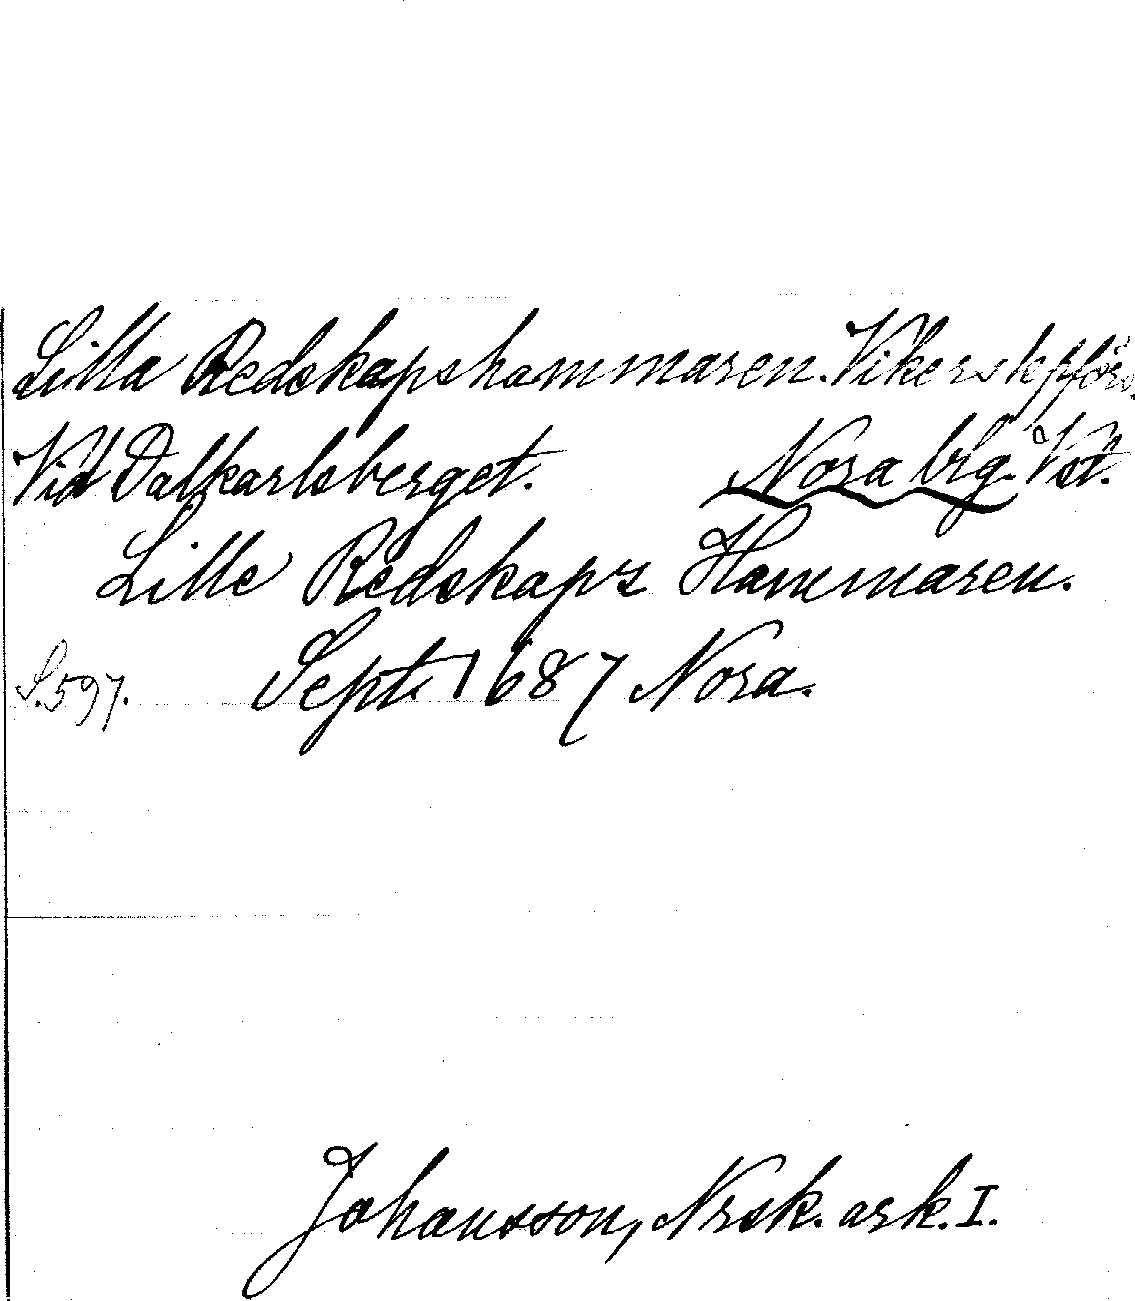 Lilla Redskapshammaren. Vikers kpförs.
Vid Dalkarlsberget. Nora blg. Vst.
Lille Redskaps Hammaren.
S. 597. Sept. 1687 Nora.
Johansson, Nrsk. ark. I.